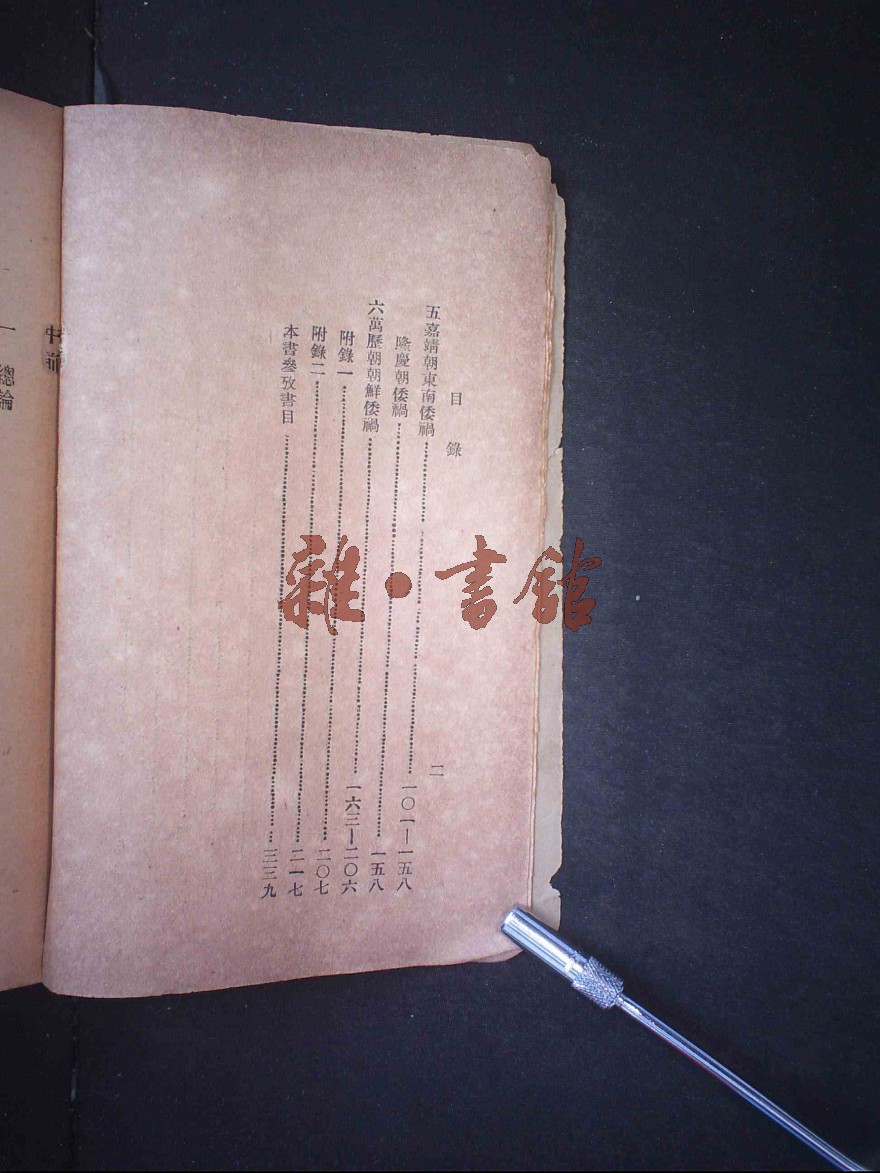 目錄
二
五嘉靖朝東南倭禍……一〇一—一五八
隆慶朝倭禍……一五八
六萬歷朝朝鮮倭禍……一六三—二〇六
附錄一……二〇七
附錄二……二一七
本書參攷書目……二三九
一 總論
雜·書館